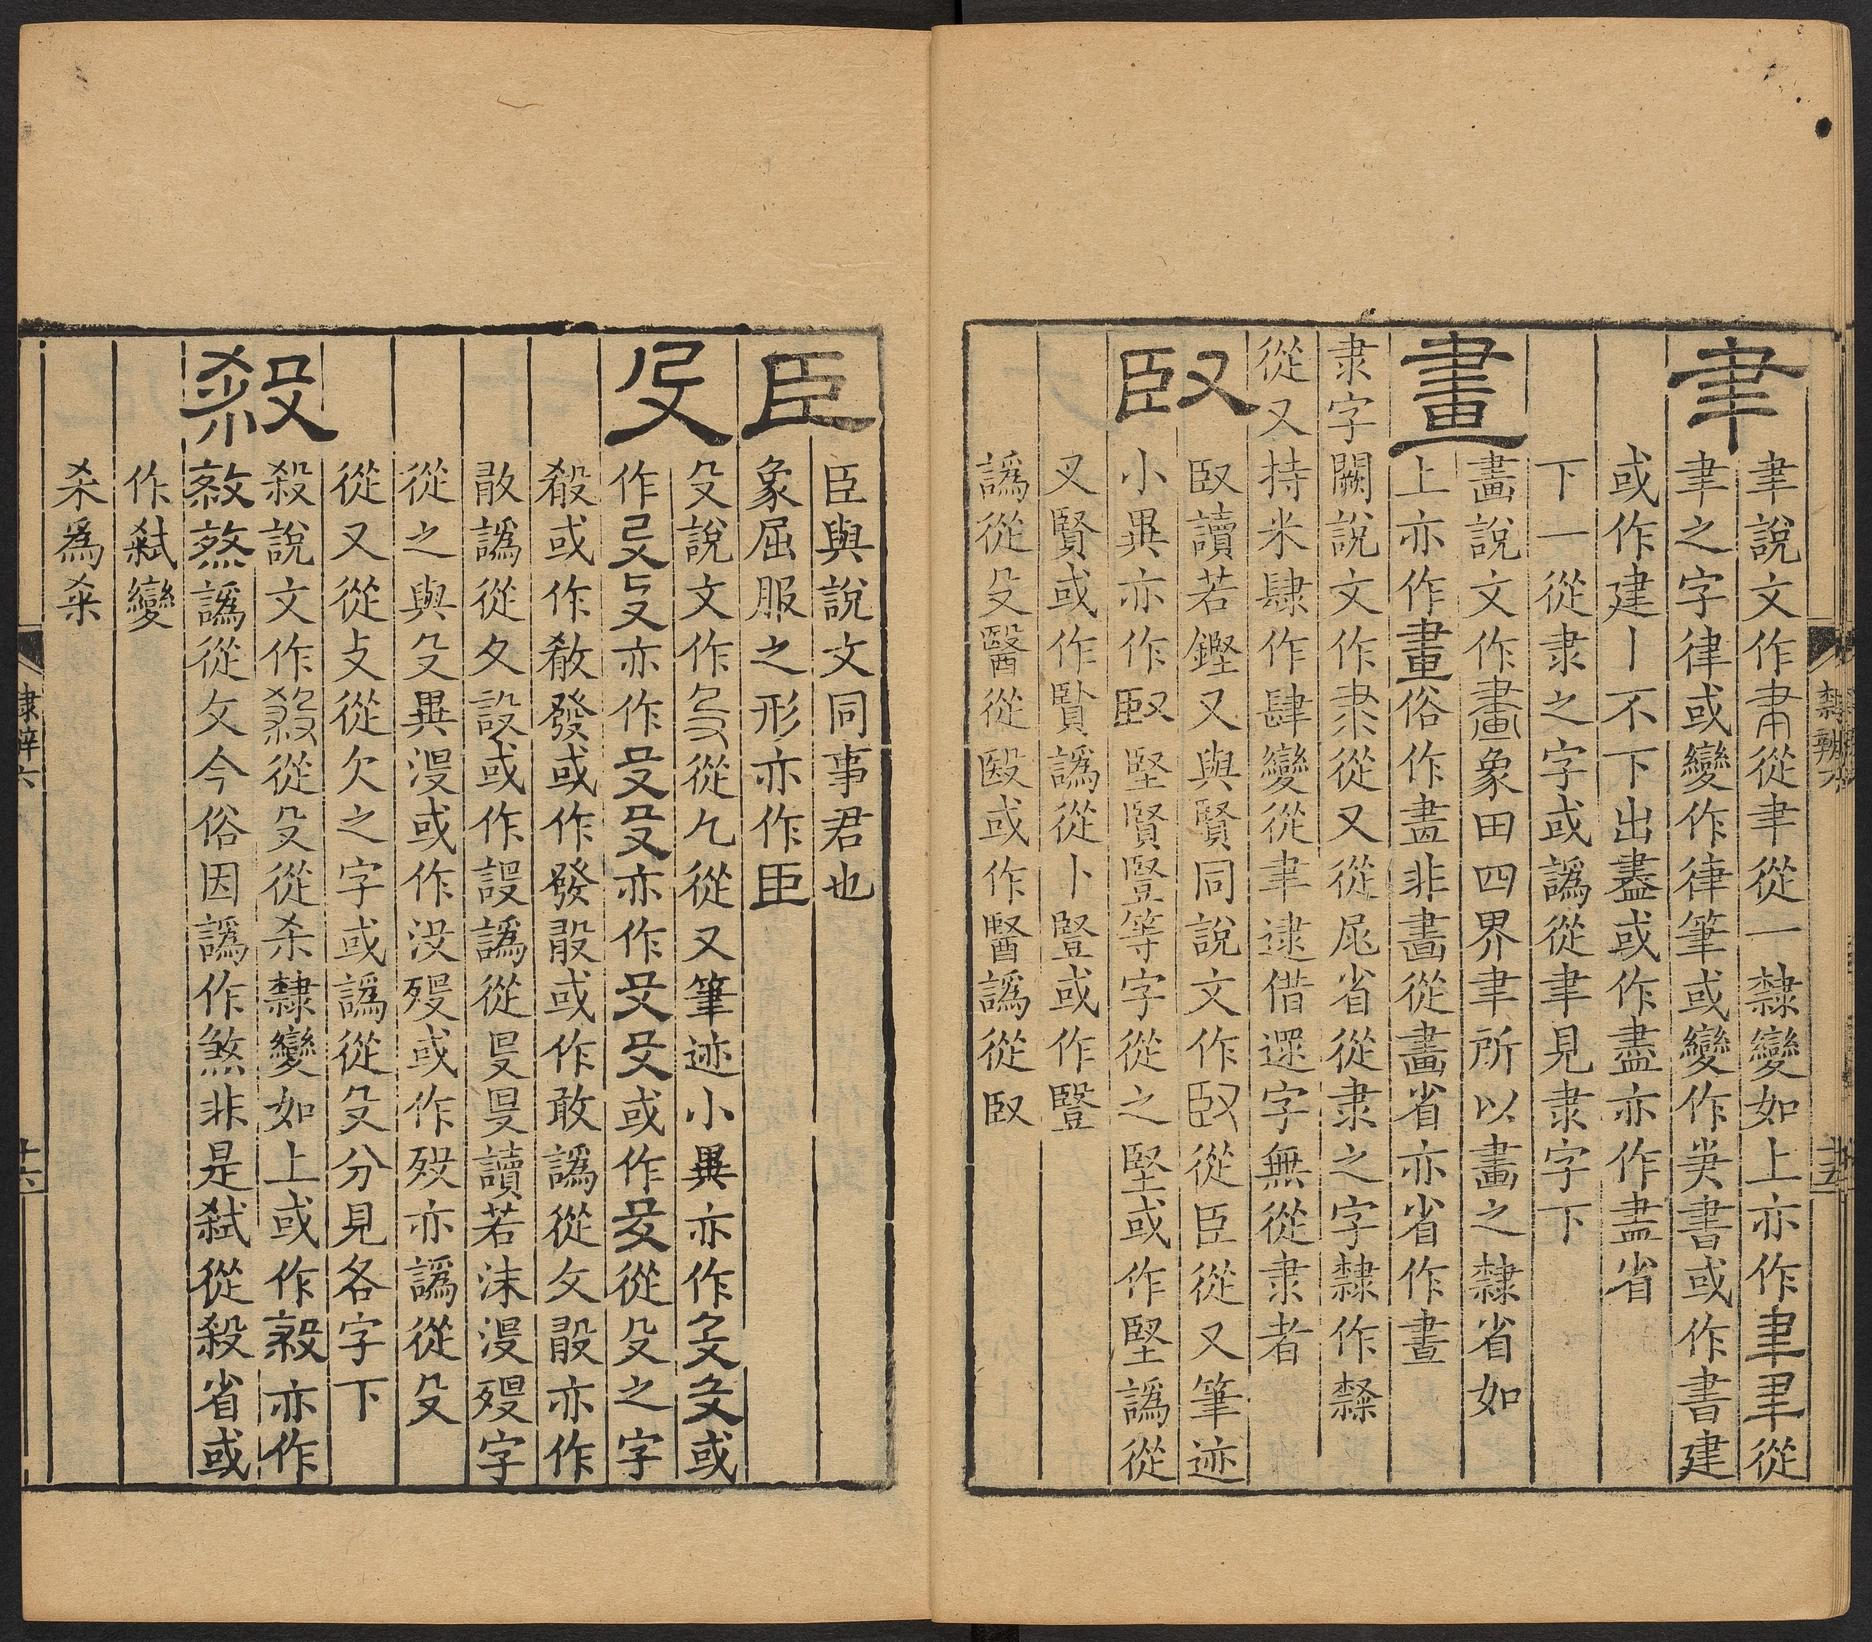 聿
聿說文作𦘒從聿從一隸變如上亦作𦘒從
聿之字律或變作律筆或變作筆書或作書建
或作建丨不下出盡或作盡亦作盡省
下一從隶之字或譌從聿見隶字下
畫
畫說文作畫象田四界聿所以畫之隸省如
上亦作畫俗作畫非畫從畫省亦省作晝
隶字闕說文作隶從又從尾省從隶之字隸作隸
從又持米肆作肆變從聿逮借還字無從隶者
臤
臤讀若鏗又與賢同說文作臤從臣從又筆迹
小異亦作臤堅賢豎等字從之堅或作堅譌從
叉賢或作賢譌從卜豎或作豎
譌從殳醫從殹或作醫譌從臤
隸辨六
十五
臣
臣與說文同事君也
象屈服之形亦作臣
殳
殳說文作殳從𠘧從又筆迹小異亦作殳殳或
作殳殳亦作殳殳亦作殳殳或作殳從殳之字
殽或作殽發或作發股或作敢譌從攵股亦作
敢譌從夂設或作設譌從𠬛𠬛讀若沫沒歿字
從之與殳異沒或作没歿或作殁亦譌從殳
從又從攴從欠之字或譌從殳分見各字下
殺
殺說文作殺從殳從杀隸變如上或作殺亦作
煞譌從攵今俗因譌作煞非是弒從殺省或
作弒變
杀爲杀
隸辨六
十六